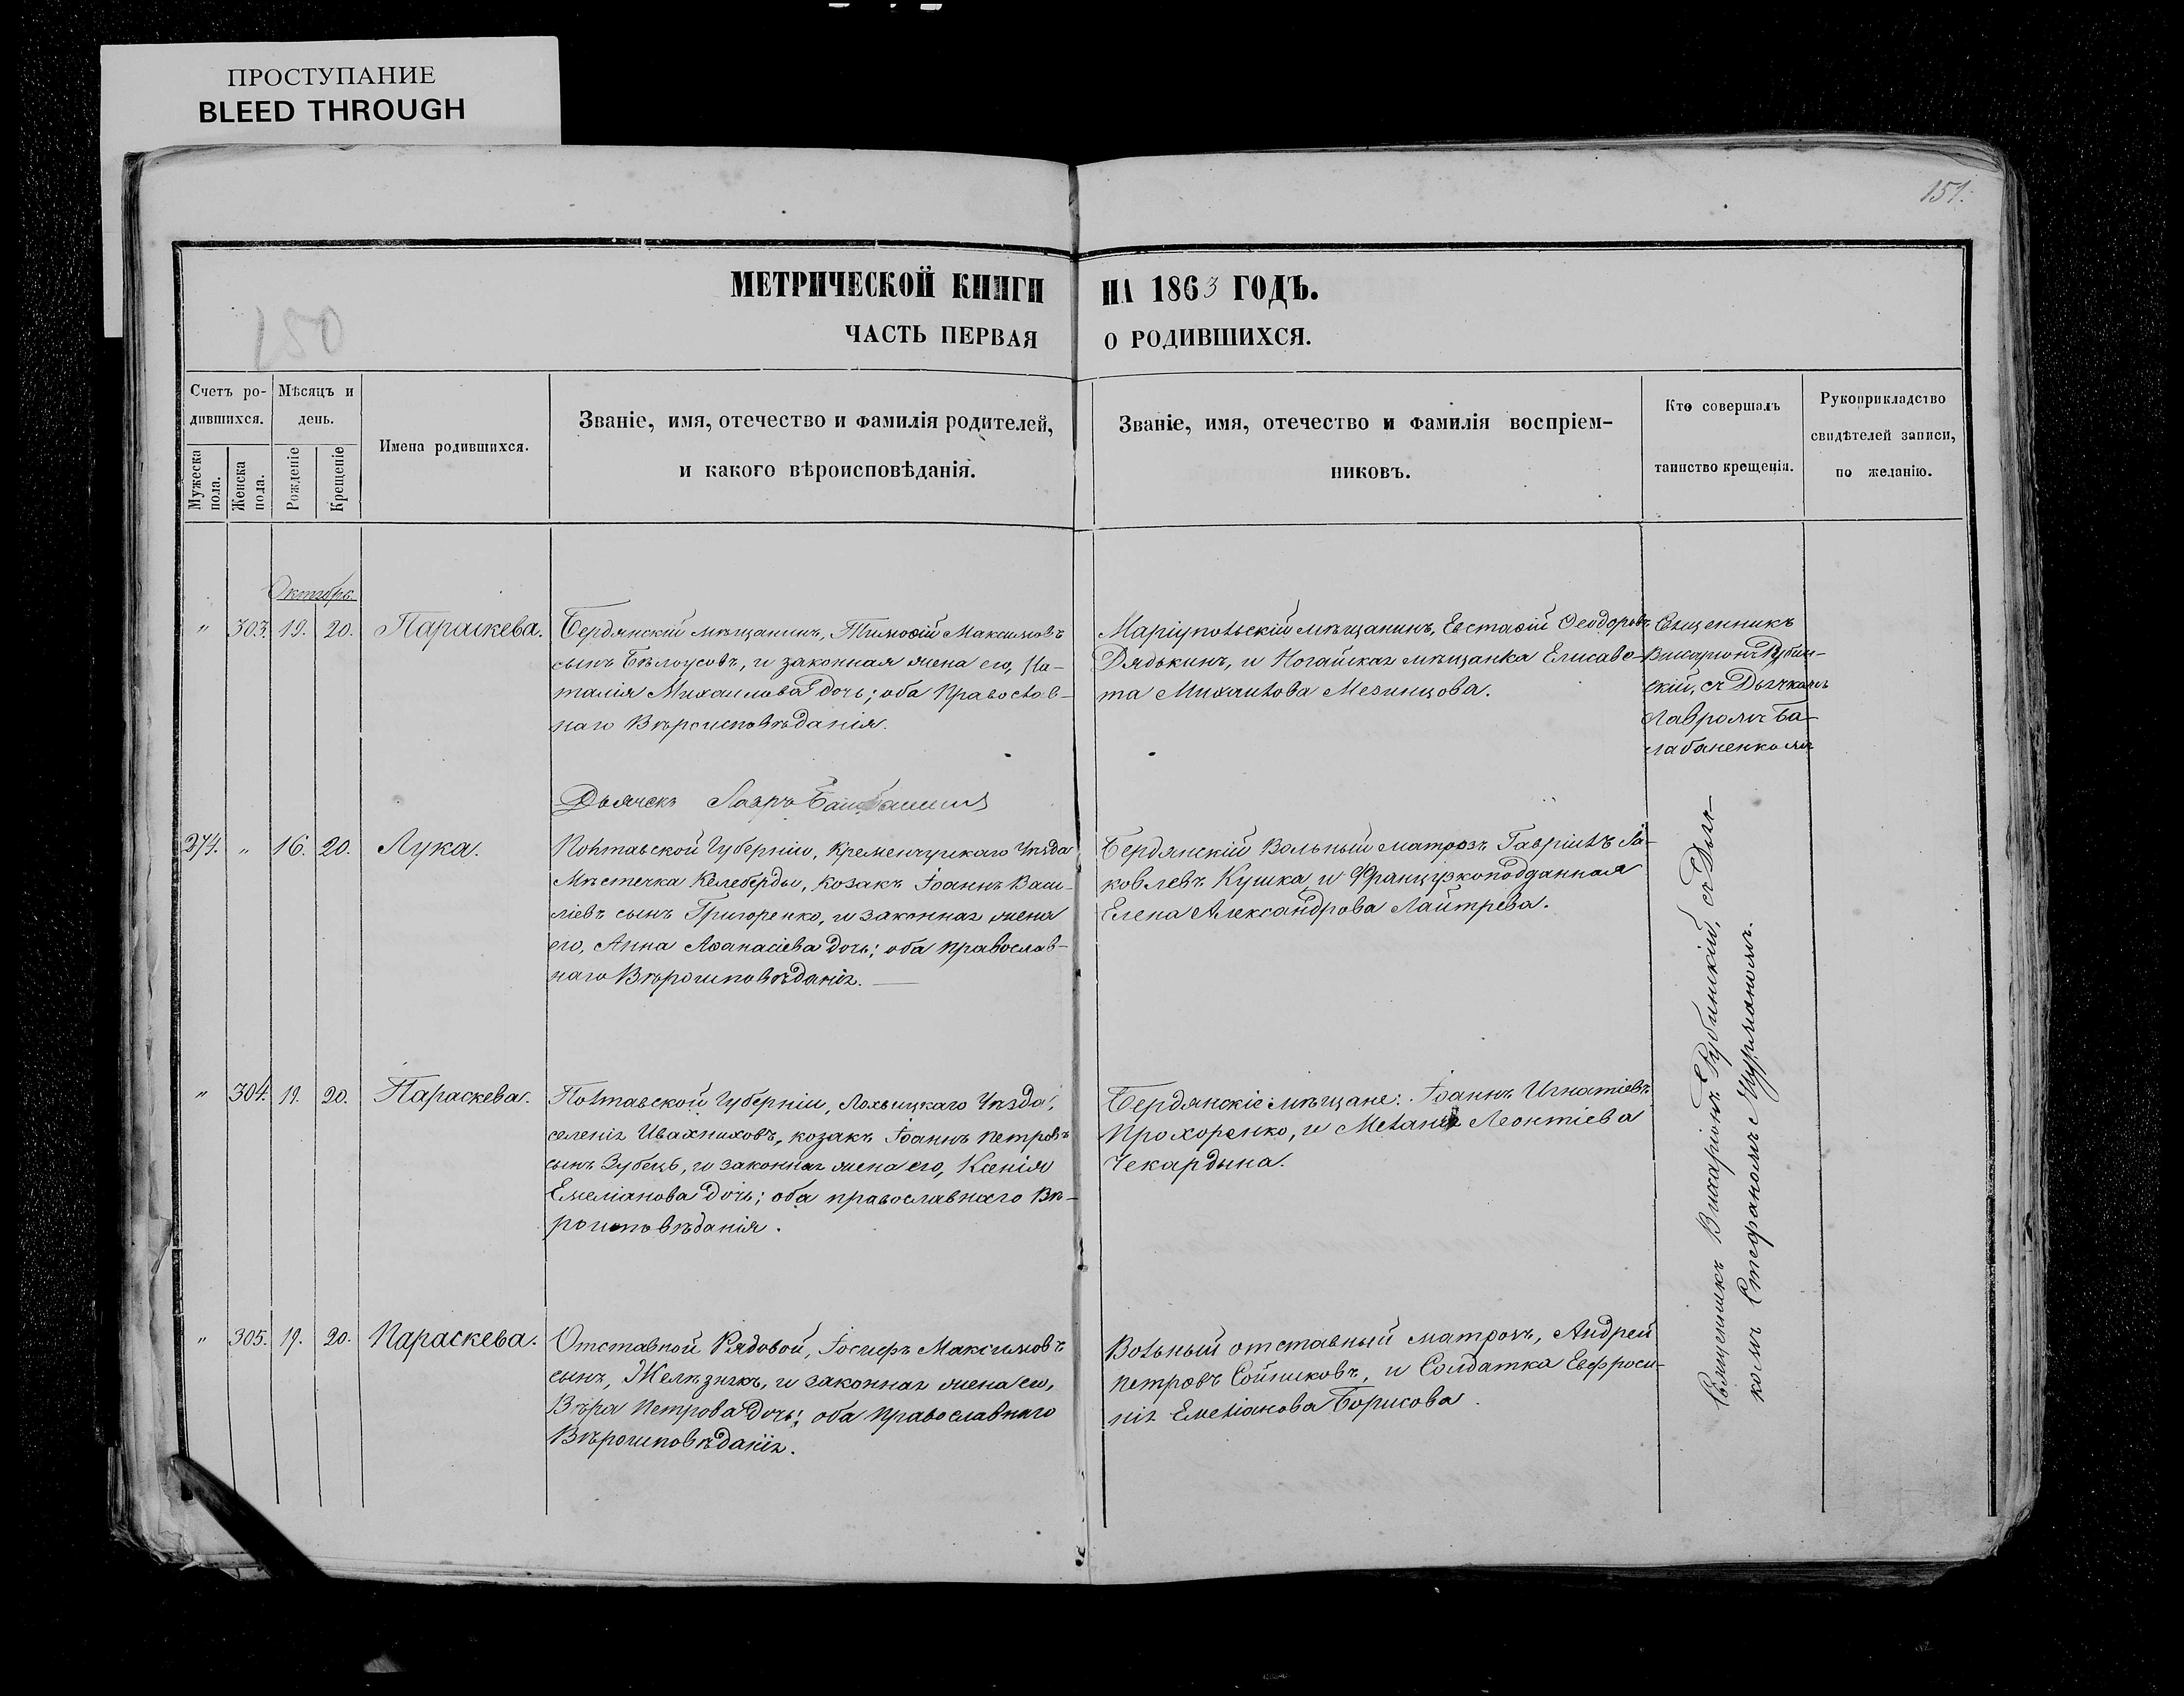 ПРОСТУПАНИЕ
BLEED THROUGH
151.
150
МЕТРИЧЕСКОЙ КНИГИ НА 1863 ГОДЪ.
ЧАСТЬ ПЕРВАЯ О РОДИВШИХСЯ.
Счетъ ро-
дившихся.
Мужеска пола.
Женска пола.
Мѣсяцъ и
день.
Рожденіе
Крещеніе
Имена родившихся.
Званіе, имя, отечество и фамилія родителей,
и какого вѣроисповѣданія.
Званіе, имя, отечество и фамилія воспріем-
никовъ.
Кто совершалъ
таинство крещенія.
Рукоприкладство
свидѣтелей записи,
по желанію.
Октябрь
" 303. 19. 20. Параскева.
Бердянскій мѣщанинъ, Тимоѳій Максимовъ
сынъ Бѣлоусовъ, и законная жена его, На-
талія Михаилова дочь; оба Православ-
наго Вѣроисповѣданія.
Маріупольскій мѣщанинъ, Евстаѳій Ѳеодоровъ
Дядькинъ, и Ногайская мѣщанка Елисаве-
та Михаилова Мезинцова.
Священникъ
Виссаріонъ Рубин-
скій, съ Дьячкомъ
Лавромъ Ба-
лабаненкомъ
Дьячекъ Лавръ
274. " 16. 20. Лука.
Полтавской Губерніи, Кременчугскаго Уѣзда
Мѣстечка Келеберды, Козакъ Іоаннъ Васи-
ліевъ сынъ Григоренко, и законная жена
его, Анна Аѳанасіева дочь; оба православ-
наго Вѣроисповѣданія.
Бердянскій Вольный матрозъ Гавріилъ Яа-
ковлевъ Кушка, и Французкоподданная
Елена Александрова Лайтрева.
" 304. 19. 20. Параскева.
Полтавской Губерніи, Лохвицкаго Уѣзда,
селенія Ивахниковъ, козакъ Іоаннъ Петровъ
сынъ Зубецъ, и законная жена его, Ксенія
Емеліанова дочь; оба православнаго Вѣ-
роисповѣданія.
Бердянскіе мѣщане: Іоаннъ Игнатіевъ
Прохоренко, и Меланія Леонтіева
Чекардина.
" 305. 19. 20. Параскева.
Отставной Рядовой, Іосифъ Максимовъ
сынъ, Желѣзнякъ, и законная жена его,
Вѣра Петрова дочь; оба православнаго
Вѣроисповѣданія.
Вольный отставный матрозъ, Андрей
Петровъ Сойниковъ, и Солдатка Евфроси-
нія Емеліанова Борисова.
Священникъ Виссаріонъ Рубинскій, съ Дьяч-
комъ Стефаномъ